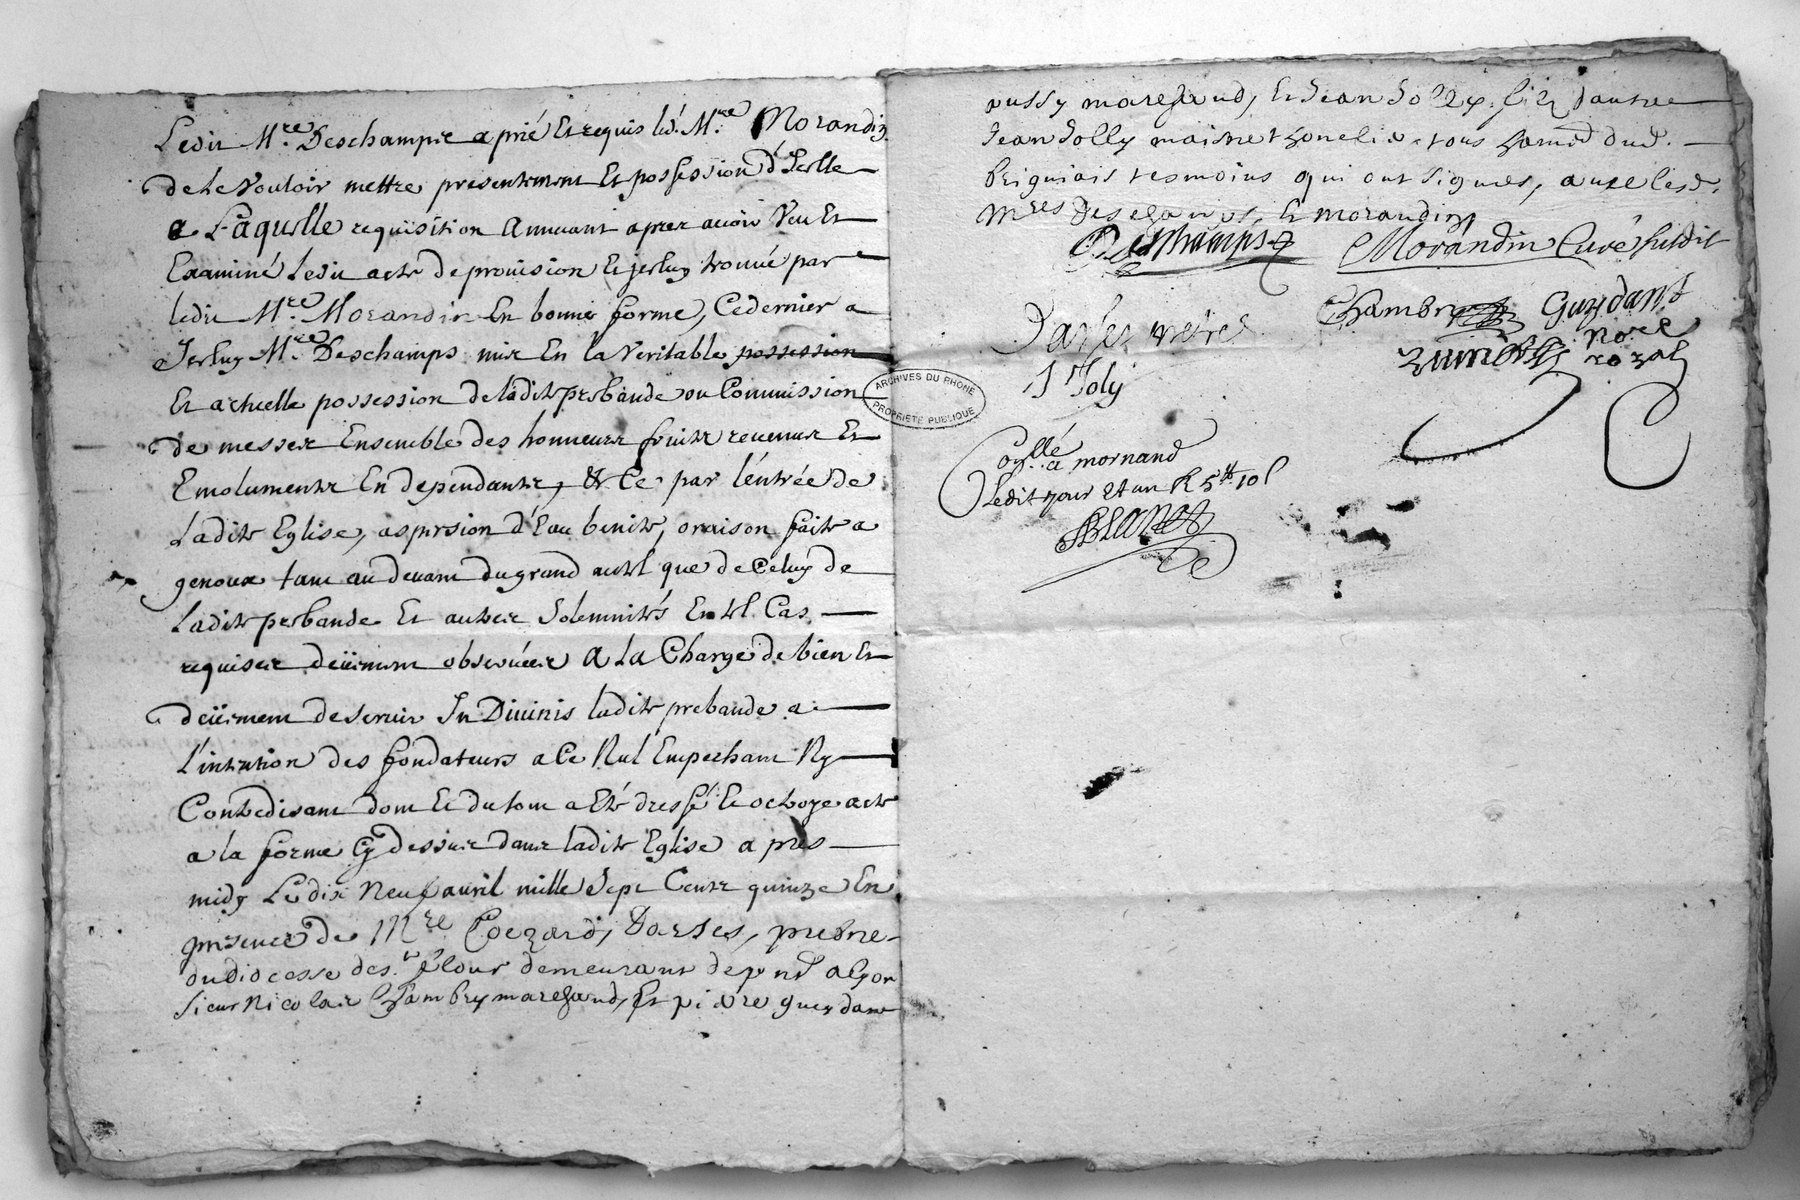 Ledit M.re Deschamps a prié et requis led. M.re Morandin
de le vouloir mettre presentement en possession d'Icelle
a Laquelle requisition annuant apres avoir veu et
Examiné Ledit acte de provision et Icelluy trouvé par
ledit M.re Morandin En bonne forme, Ce dernier a
Icelluy M.re Deschamps mis En la veritable possession
Et actuelle possession de ladite prebande ou Commission
de messes Ensemble des honneurs fruits revenus Et
Emoluments En dependants, & Ce par l'entrée de
Ladite Eglise, aspersion d'Eau benite, oraison faite a
genoux tant au devant du grand autel que de Celuy de
Ladite prebande Et autres Solemnités En tel Cas
requises deüement observées a la Charge de bien Et
deüement deservir In Divinis ladite prebande a
L'intention des fondateurs a Ce Nul Empechant Ny
Contredisant dont Et du tout a Eté dressé le octroye acte
a la forme Cy dessus dans ladite Eglise a pres
midy Le dix Neuf avril mille Sept Cents quinze En
presence de M.re Darses, prebtre
du diocesse de S.t flour demeurant a Lyon
Sieur Nicolas Chambry marchand, Et pierre gueydant
aussy marchand, Et Jean Jolly fils d'autre
Jean Jolly maistre tous dud.
Brigniais tesmoins qui ont Signés, avec lesd.
M.res Deschamps, Et Morandin
Deschamps Morandin Curé susdit
Darses Chambry Guydant
J Joly No.re royal
Coll.é a mornand
Ledit jour et an R 5.tt 10 s
ARCHIVES DU RHONE
PROPRIETE PUBLIQUE